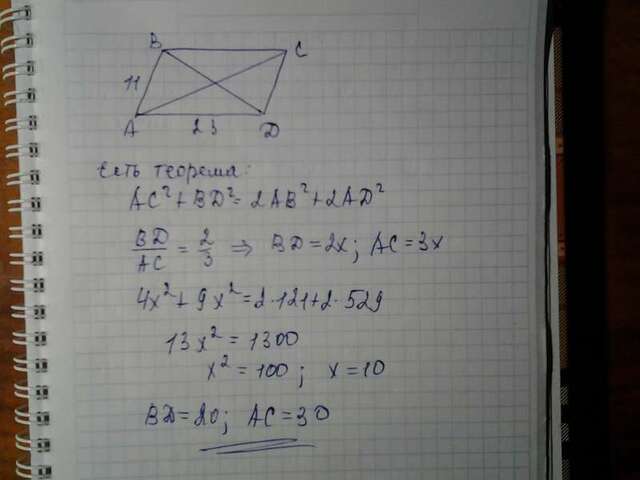 B C
11
A 23 D
Есть теорема:
AC² + BD² = 2AB² + 2AD²
BD/AC = 2/3 ⇒ BD = 2x; AC = 3x
4x² + 9x² = 2·121 + 2·529
13x² = 1300
x² = 100; x = 10
BD = 20; AC = 30